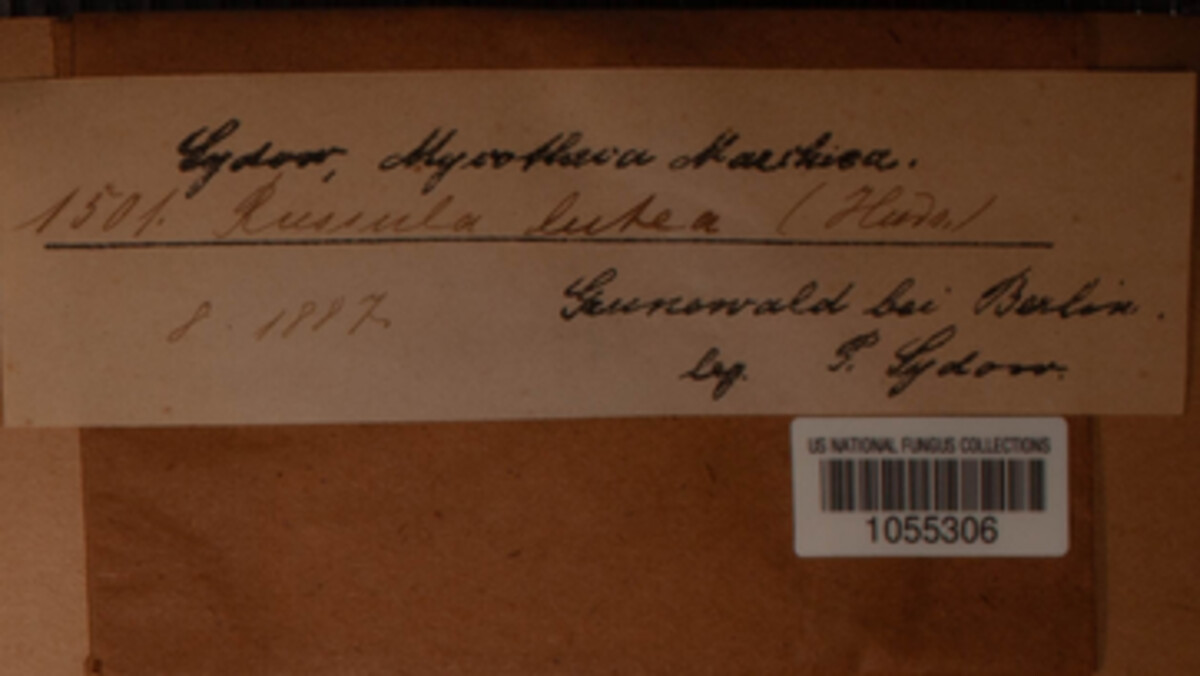 Sydow, Mycotheca Marchica.
1501. Russula lutea (Huds.)
8. 1887.
Grunewald bei Berlin.
leg. P. Sydow.
US NATIONAL FUNGUS COLLECTIONS
1055306